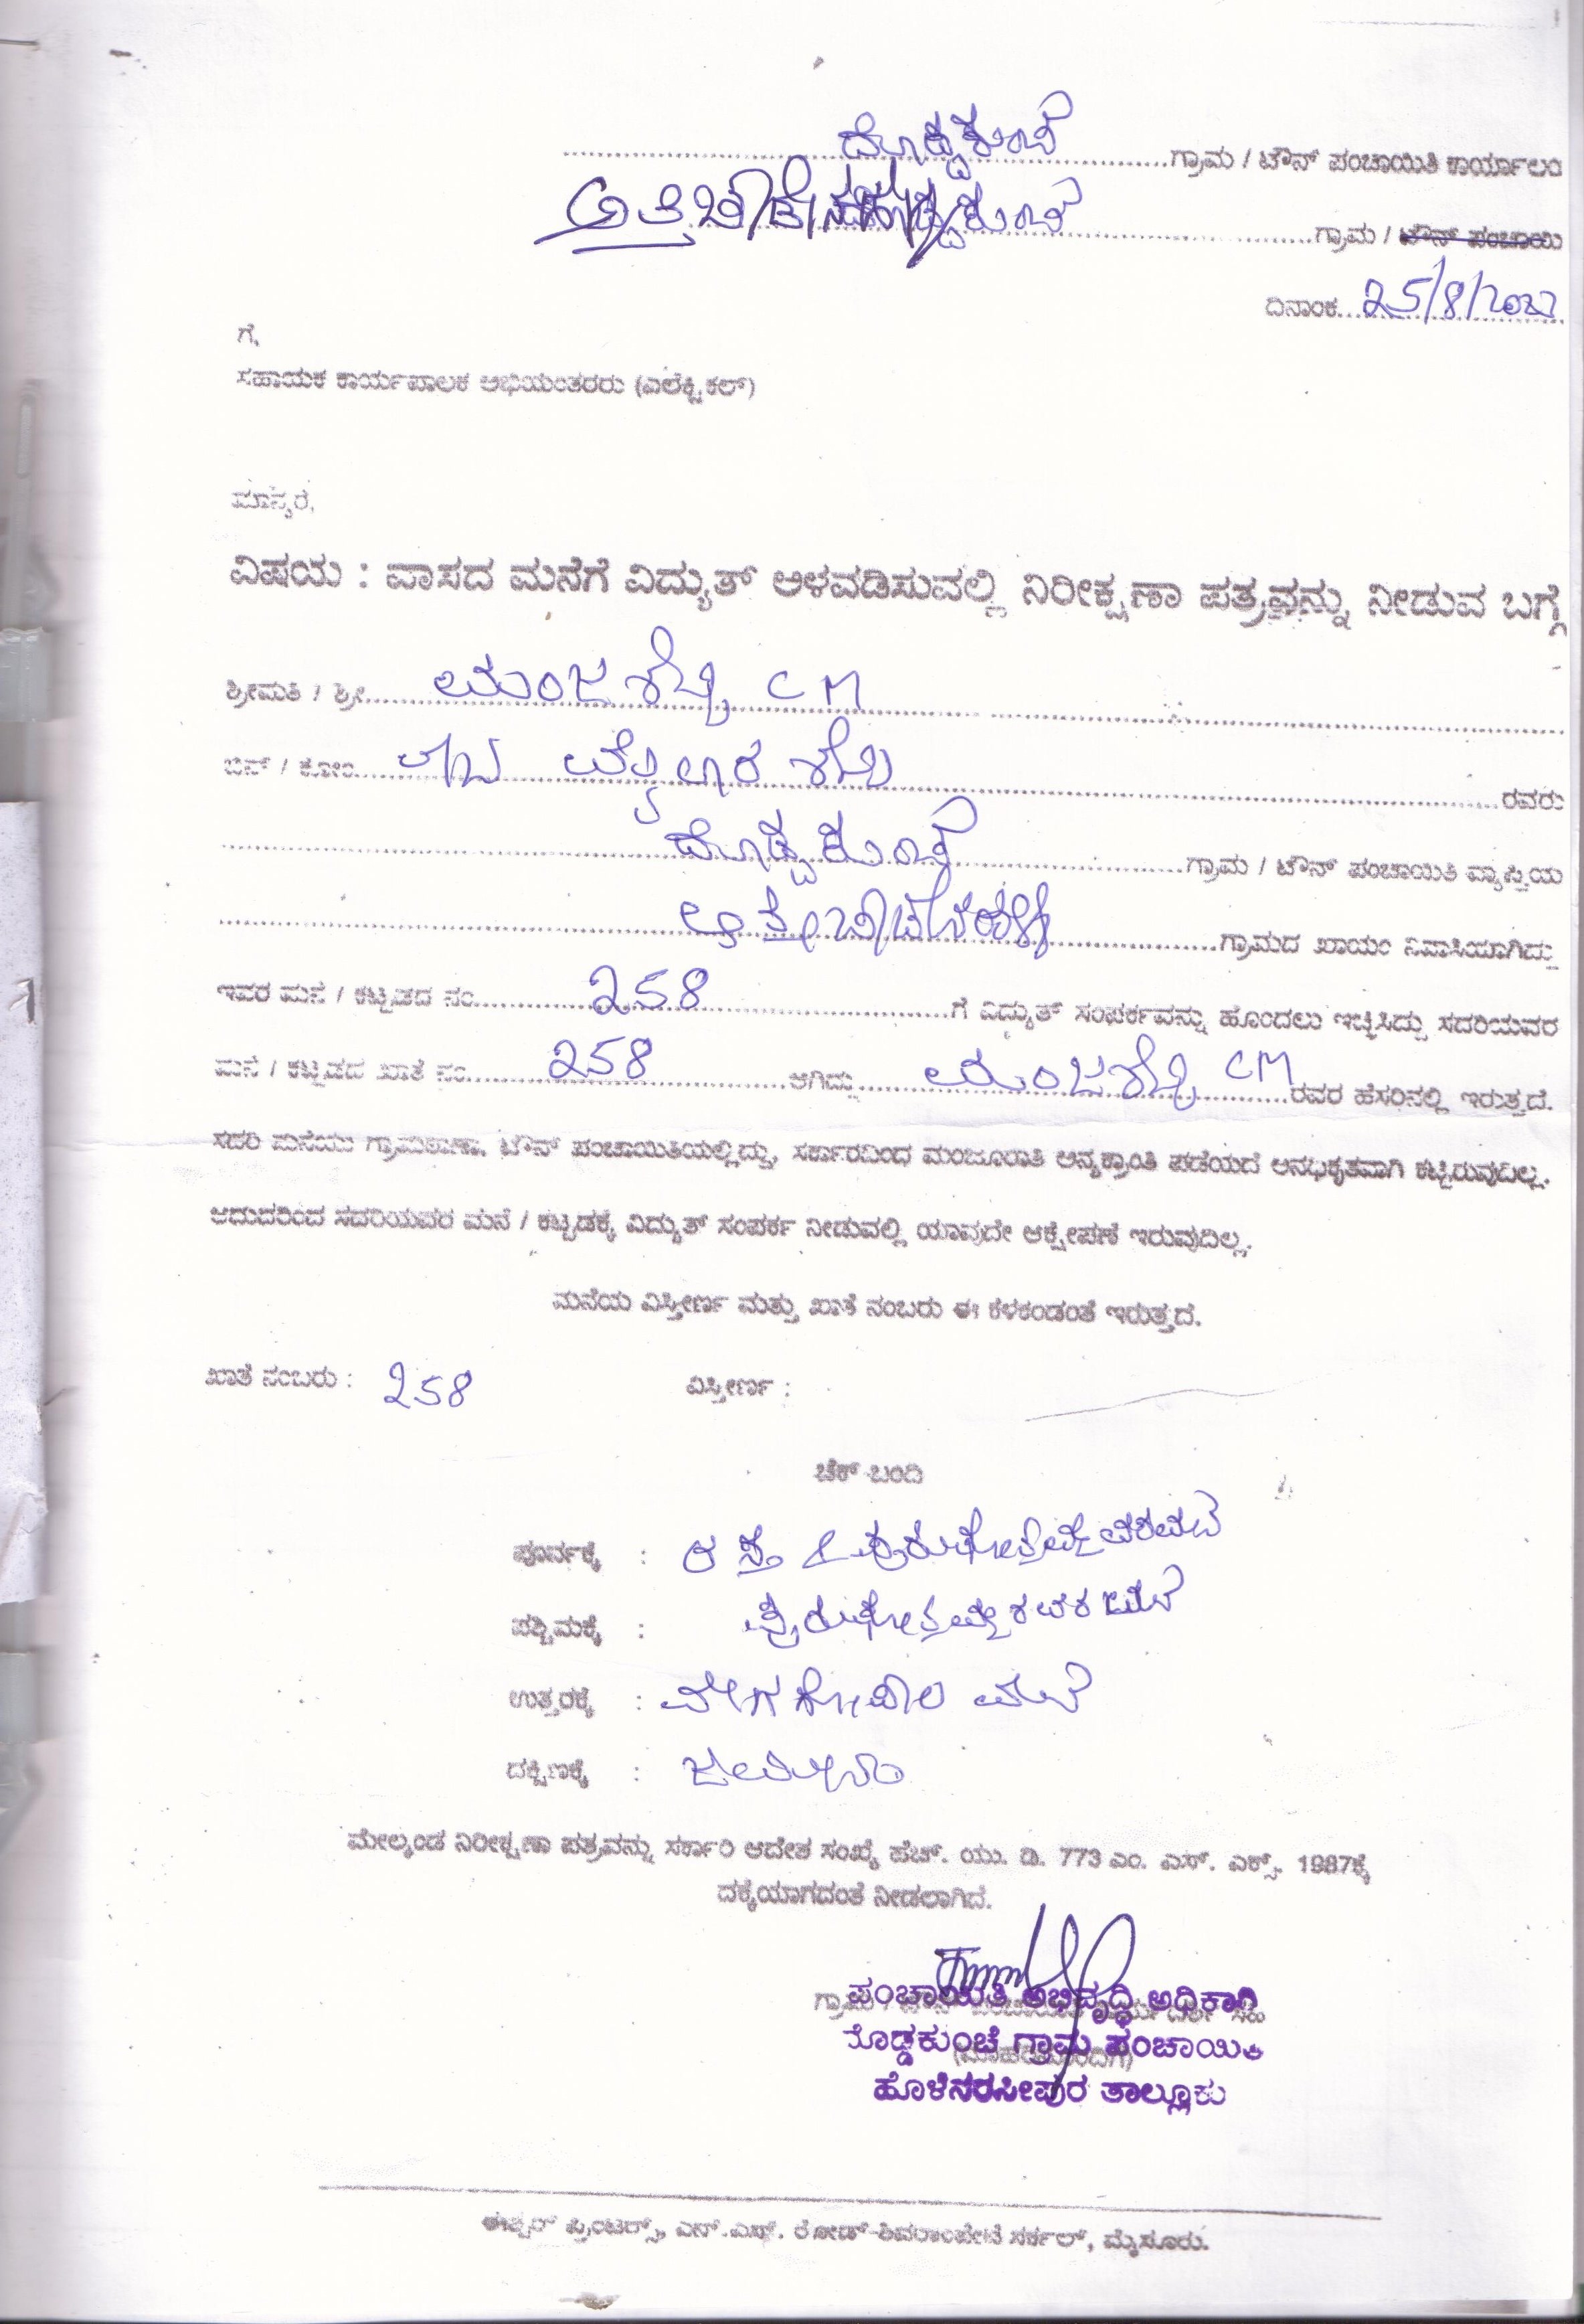 ದೊಡ್ಡಕುಂಚೆ ಗ್ರಾಮ / ಟೌನ್ ಪಂಚಾಯಿತಿ ಕಾರ್ಯಾಲಂ
ಗ್ರಾಮ / ಟೌನ್ ಪಂಚಾಯಿ
ದಿನಾಂಕ 25/8/2022
ಗೆ,
ಸಹಾಯಕ ಕಾರ್ಯಪಾಲಕ ಅಭಿಯಂತರರು (ಎಲೆಕ್ಟ್ರಿಕಲ್)
ಮಾನ್ಯರೆ,
ವಿಷಯ : ವಾಸದ ಮನೆಗೆ ವಿದ್ಯುತ್ ಅಳವಡಿಸುವಲ್ಲಿ ನಿರೀಕ್ಷಣಾ ಪತ್ರವನ್ನು ನೀಡುವ ಬಗ್ಗೆ
ಶ್ರೀಮತಿ / ಶ್ರೀ ಮಂಜಶೆಟ್ಟಿ C M
ಬಿನ್ / ಕೋಂ ರವರು
ದೊಡ್ಡಕುಂಚೆ ಗ್ರಾಮ / ಟೌನ್ ಪಂಚಾಯಿತಿ ವ್ಯಾಪ್ತಿಯ
ಗ್ರಾಮದ ಖಾಯಂ ನಿವಾಸಿಯಾಗಿದ್ದು
ಇವರ ಮನೆ / ಕಟ್ಟಡದ ನಂ 258 ಗೆ ವಿದ್ಯುತ್ ಸಂಪರ್ಕವನ್ನು ಹೊಂದಲು ಇಚ್ಛಿಸಿದ್ದು ಸದರಿಯವರ
ಮನೆ / ಕಟ್ಟಡದ ಖಾತೆ ನಂ 258 ಆಗಿದ್ದು ಮಂಜಶೆಟ್ಟಿ CM ರವರ ಹೆಸರಿನಲ್ಲಿ ಇರುತ್ತದೆ.
ಸದರಿ ಮನೆಯು ಗ್ರಾಮಠಾಣಾ. ಟೌನ್ ಪಂಚಾಯಿತಿಯಲ್ಲಿದ್ದು, ಸರ್ಕಾರದಿಂದ ಮಂಜೂರಾತಿ ಅನ್ಯಕ್ರಾಂತಿ ಪಡೆಯದೆ ಅನಧಿಕೃತವಾಗಿ ಕಟ್ಟಿರುವುದಿಲ್ಲ.
ಆದುದರಿಂದ ಸದರಿಯವರ ಮನೆ / ಕಟ್ಟಡಕ್ಕೆ ವಿದ್ಯುತ್ ಸಂಪರ್ಕ ನೀಡುವಲ್ಲಿ ಯಾವುದೇ ಆಕ್ಷೇಪಣೆ ಇರುವುದಿಲ್ಲ.
ಮನೆಯ ವಿಸ್ತೀರ್ಣ ಮತ್ತು ಖಾತೆ ನಂಬರು ಈ ಕೆಳಕಂಡಂತೆ ಇರುತ್ತದೆ.
ಖಾತೆ ನಂಬರು : 258 ವಿಸ್ತೀರ್ಣ :
ಚೆಕ್ ಬಂದಿ
ಪೂರ್ವಕ್ಕೆ : ರಸ್ತೆ &
ಪಶ್ಚಿಮಕ್ಕೆ :
ಉತ್ತರಕ್ಕೆ : ಮನೆ
ದಕ್ಷಿಣಕ್ಕೆ : ಜಮೀನು
ಮೇಲ್ಕಂಡ ನಿರೀಕ್ಷಣಾ ಪತ್ರವನ್ನು ಸರ್ಕಾರಿ ಆದೇಶ ಸಂಖ್ಯೆ ಹೆಚ್. ಯು. ಡಿ. 773 ಎಂ. ಎಸ್. ಎಕ್ಸ್. 1987ಕ್ಕೆ
ದಕ್ಕೆಯಾಗದಂತೆ ನೀಡಲಾಗಿದೆ.
ಪಂಚಾಯತಿ ಅಭಿವೃದ್ಧಿ ಅಧಿಕಾರಿ
ದೊಡ್ಡಕುಂಚೆ ಗ್ರಾಮ ಪಂಚಾಯಿತಿ
ಹೊಳೆನರಸೀಪುರ ತಾಲ್ಲೂಕು
ಈಶ್ವರ್ ಪ್ರಿಂಟರ್ಸ್, ಎನ್.ಎಸ್. ರೋಡ್-ಶಿವರಾಂಪೇಟೆ ಸರ್ಕಲ್, ಮೈಸೂರು.